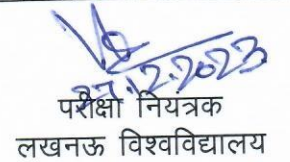 27.12.2023
परीक्षा नियंत्रक
लखनऊ विश्वविद्यालय